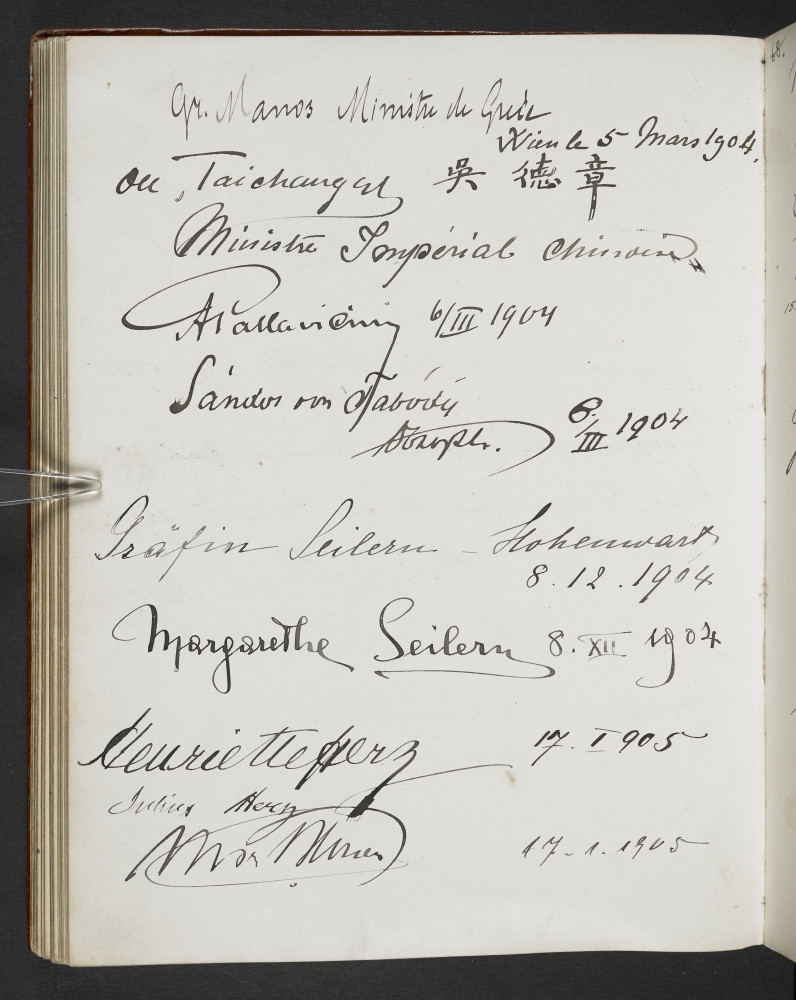 Gr. Manos Ministre de Grèce
Wien le 5 Mars 1904,
Ou Taichang 吳德章
Ministre Impérial Chinois
A Pallavicini 6/III 1904
Sándor von
6./III 1904
Gräfin Seilern - Hohenwart
8.12.1904
Margarethe Seilern 8. XII 1904
Henriette Herz 17. I 905
Julius Herz
17-1.1905